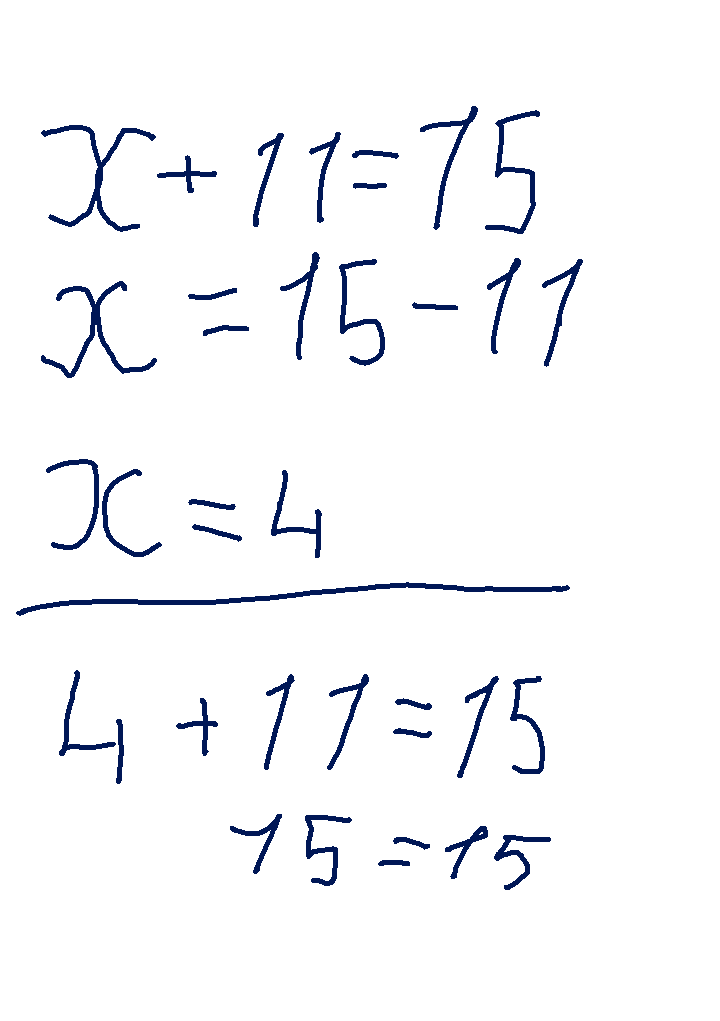 x + 11 = 15
x = 15 - 11
x = 4
4 + 11 = 15
15 = 15